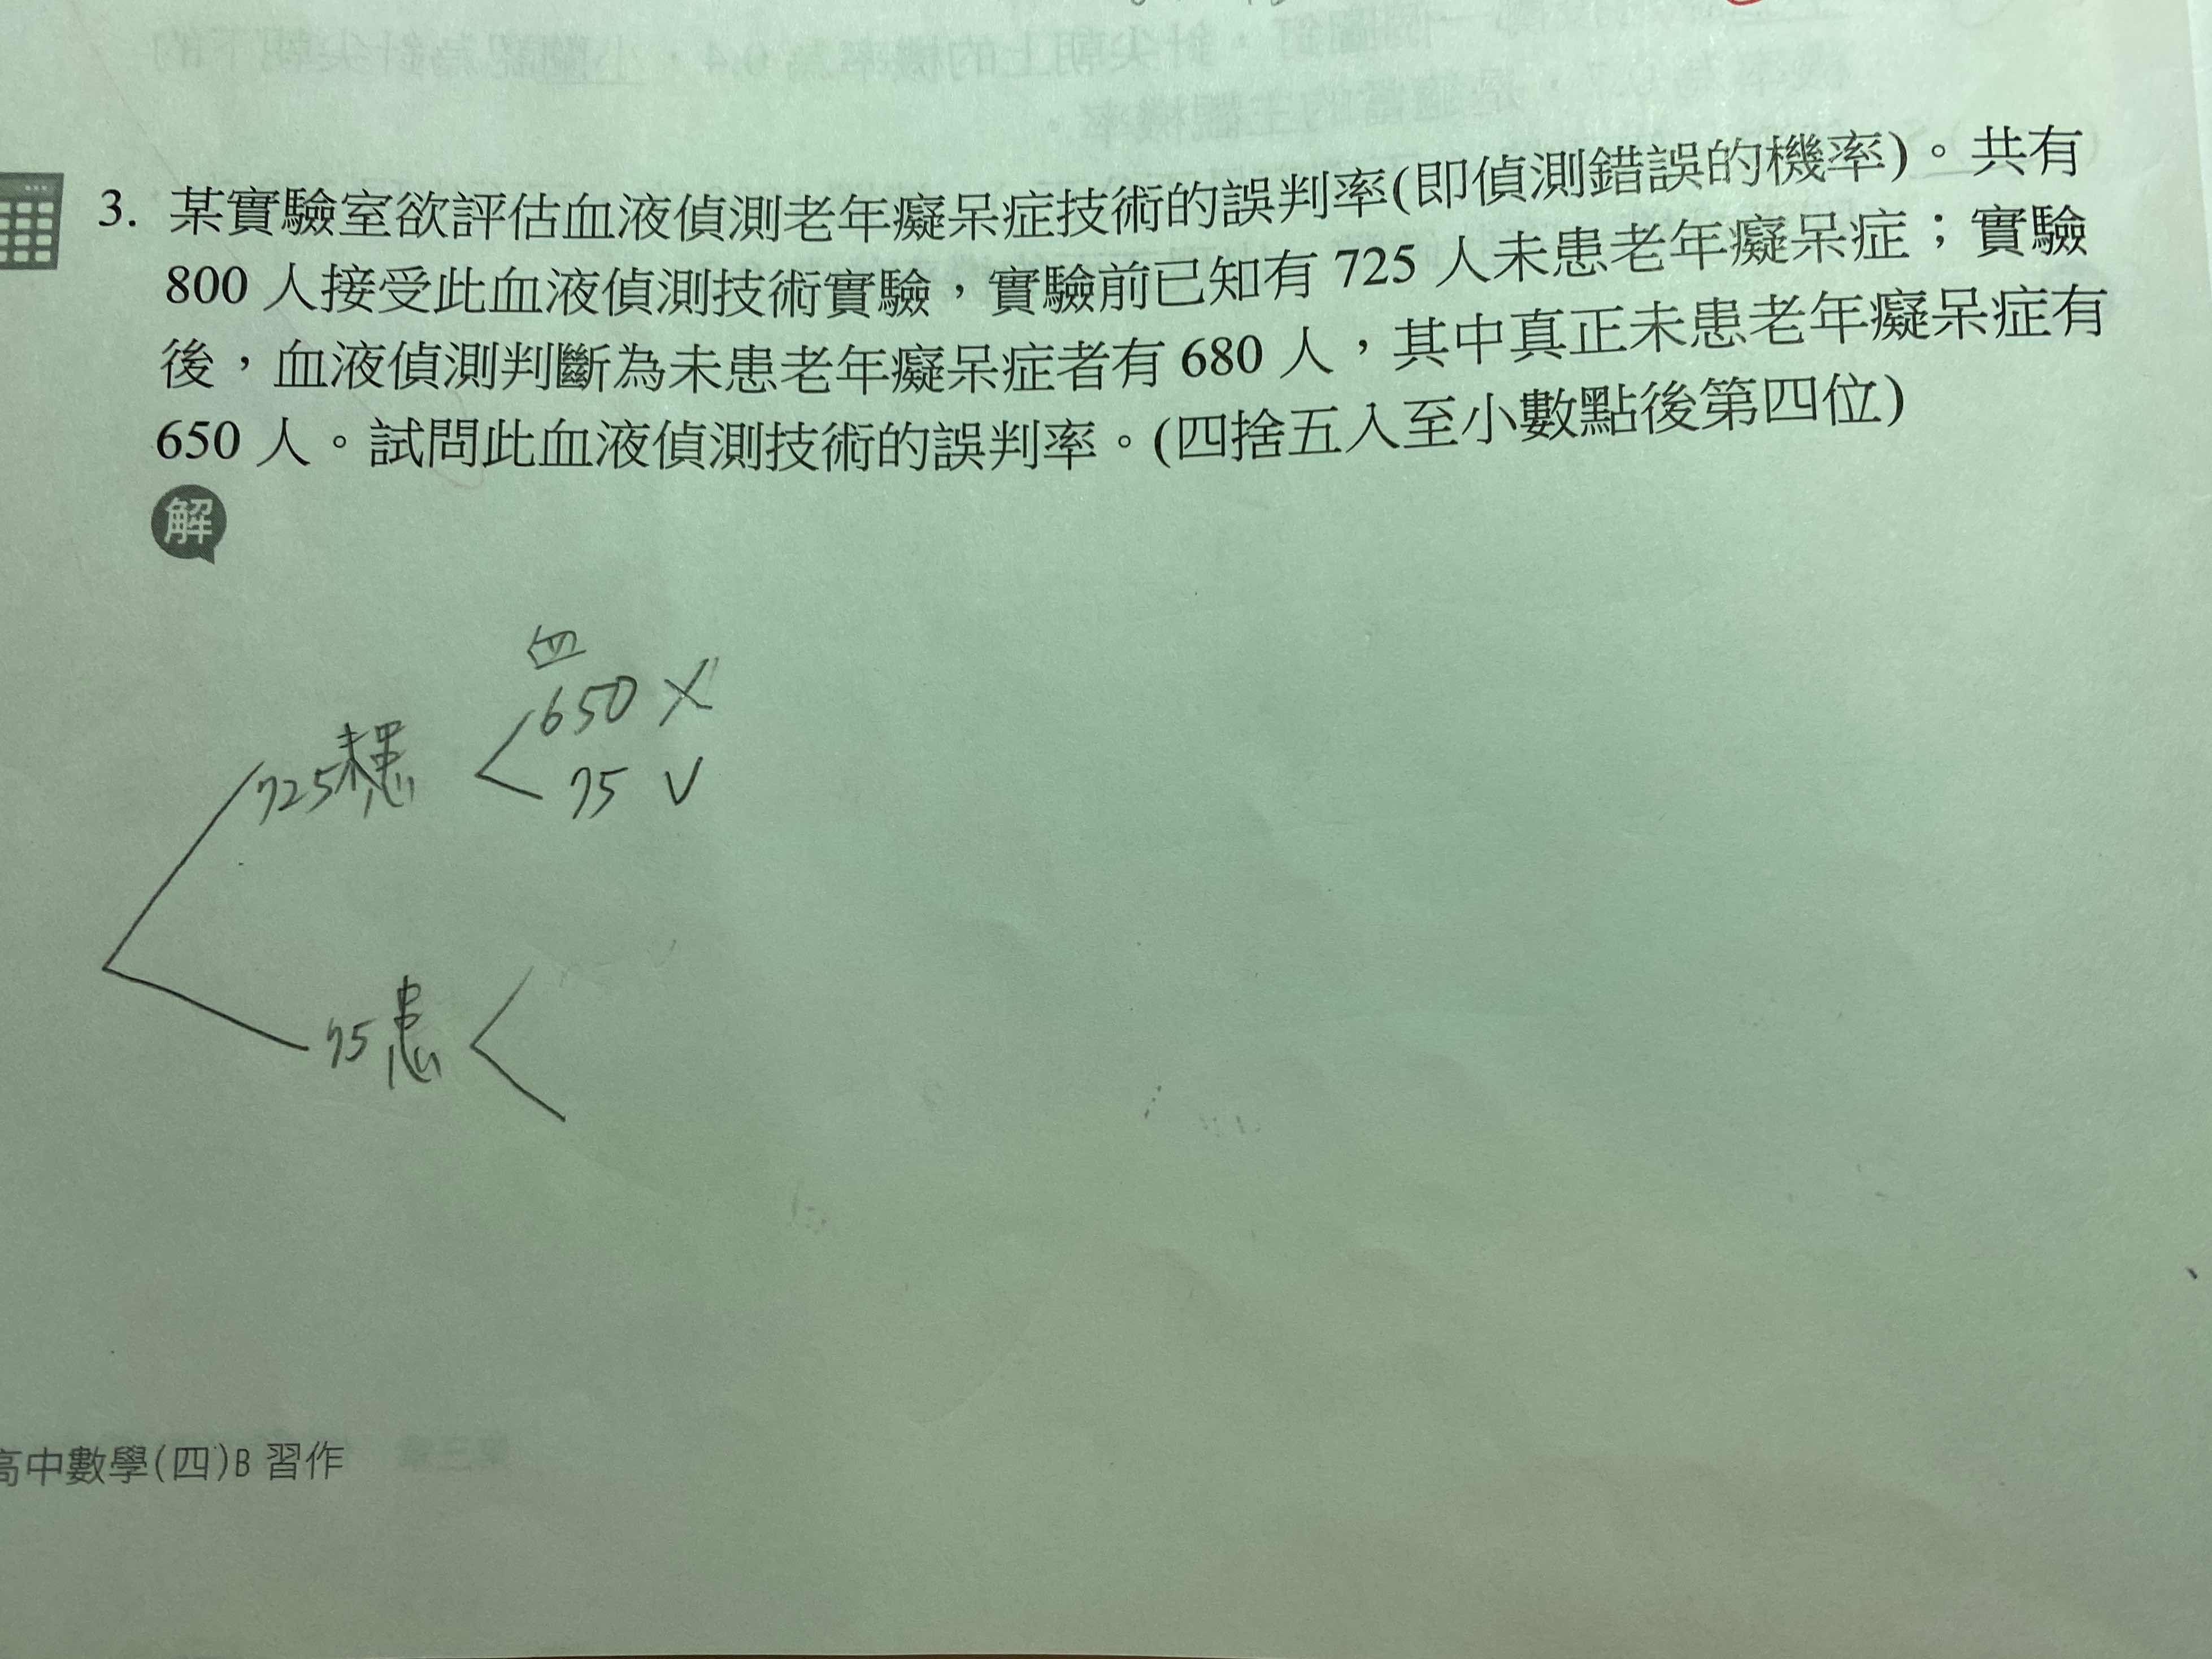 3. 某實驗室欲評估血液偵測老年癡呆症技術的誤判率(即偵測錯誤的機率)。共有
800 人接受此血液偵測技術實驗，實驗前已知有 725 人未患老年癡呆症；實驗
後，血液偵測判斷為未患老年癡呆症者有 680 人，其中真正未患老年癡呆症有
650 人。試問此血液偵測技術的誤判率。(四捨五入至小數點後第四位)
解
血
650 X
725未患
75 V
75患
高中數學(四)B 習作